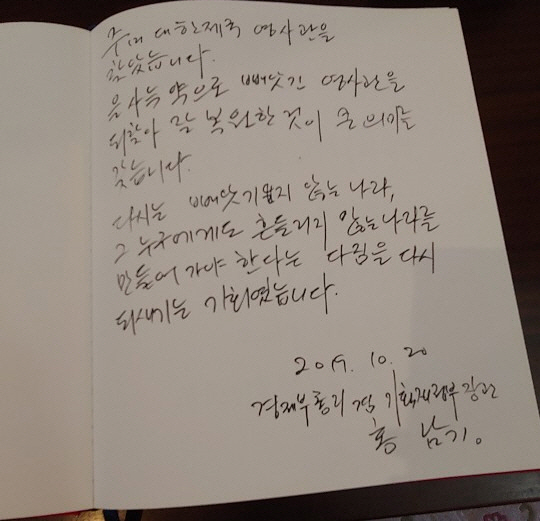 주미 대한제국 영사관을
찾았습니다.
을사늑약으로 빼앗긴 영사관을
되찾아 잘 복원한 것이 큰 의미를
갖습니다.
다시는 빼앗기우지 않는 나라,
그 누구에게도 흔들리지 않는 나라를
만들어 가야 한다는 다짐을 다시
되새기는 기회였습니다.
2019. 10. 20
경제부총리 겸 기획재정부장관
홍남기.